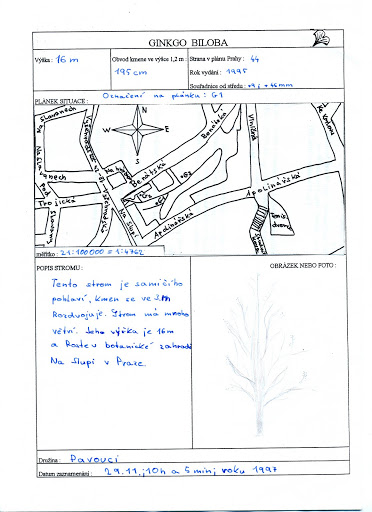 GINKGO BILOBA
Výška : 16 m
Obvod kmene ve výšce 1,2 m :
195 cm
Strana v plánu Prahy : 44
Rok vydání : 1995
Souřadnice od středu :
PLÁNEK SITUACE :
Označení na plánku : G1
N
W
E
S
Na Slovanech
Vyšehradská
Benátská
Benátská
Viničná
Ke Karlovu
Trojická
Pod
Slovany
Vyšehradská
Na Slupi
Apolinářská
Apolinářská
G2
G1
Tenis
dvorce
měřítko :
POPIS STROMU :
OBRÁZEK NEBO FOTO :
Tento strom je samičího
pohlaví, kmen se ve
Rozdvojuje. Strom má mnoho
větví. Jeho výška je 16m
a Roste v botanické zahradě
Na Slupi v Praze.
Družina : Pavouci
Datum zaznamenání : 29.11.,10h a 5 min, roku 1997